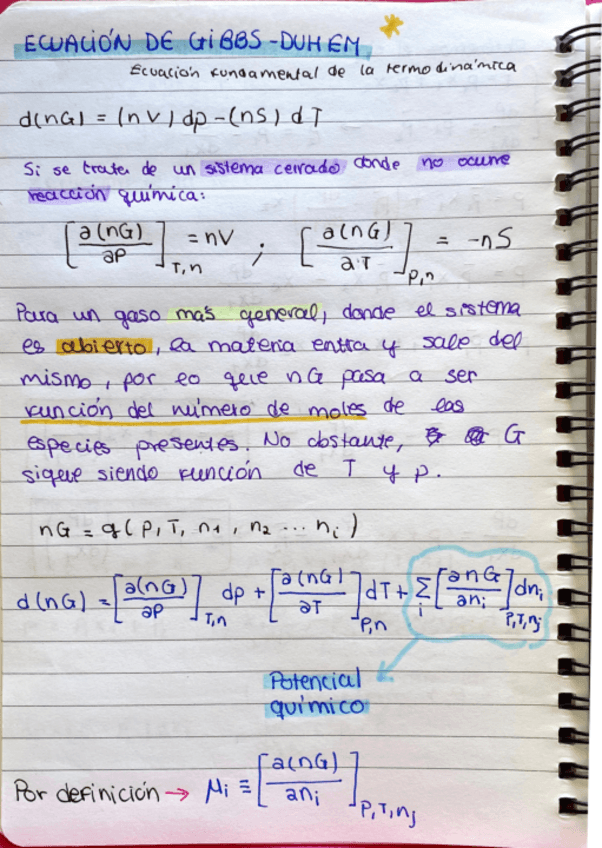 ECUACIÓN DE GIBBS-DUHEM
Ecuación fundamental de la termodinámica
d(nG) = (nV) dp - (nS) dT
Si se trata de un sistema cerrado donde no ocurre
reacción química:
[∂(nG)/∂P]T,n = nV ; [∂(nG)/∂T]P,n = -nS
Para un gaso más general, donde el sistema
es abierto, la materia entra y sale del
mismo, por lo que nG pasa a ser
función del número de moles de las
especies presentes. No obstante, G
sigue siendo función de T y p.
nG = g(P, T, n1, n2 ... ni)
d(nG) = [∂(nG)/∂P]T,n dp + [∂(nG)/∂T]P,n dT + Σi [∂nG/∂ni]P,T,nj dni
Potencial
químico
Por definición → μi ≡ [∂(nG)/∂ni]P,T,nj